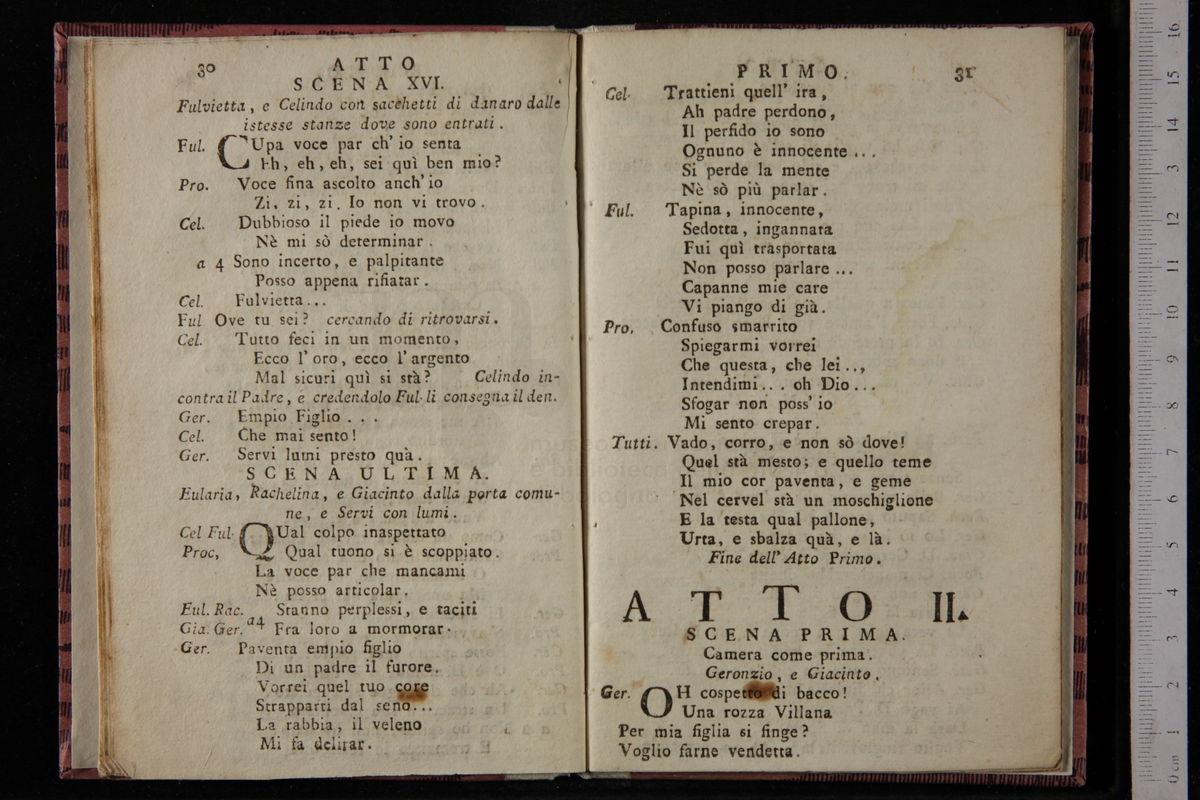 30
ATTO
SCENA XVI.
Fulvietta, e Celindo con sacchetti di danaro dalle
istesse stanze dove sono entrati.
Ful. CUpa voce par ch' io senta
Eh, eh, eh, sei quì ben mio?
Pro. Voce fina ascolto anch' io
Zi, zi, zi. Io non vi trovo.
Cel. Dubbioso il piede io movo
Nè mi sò determinar.
a 4 Sono incerto, e palpitante
Posso appena rifiatar.
Cel. Fulvietta...
Ful Ove tu sei? cercando di ritrovarsi.
Cel. Tutto feci in un momento,
Ecco l' oro, ecco l' argento
Mal sicuri quì si stà? Celindo in-
contra il Padre, e credendolo Ful. li consegna il den.
Ger. Empio Figlio . . .
Cel. Che mai sento!
Ger. Servi lumi presto quà.
SCENA ULTIMA.
Eularia, Rachelina, e Giacinto dalla porta comu-
ne, e Servi con lumi.
Cel Ful. QUal colpo inaspettato
Proc, Qual tuono si è scoppiato.
La voce par che mancami
Nè posso articolar.
Eul. Rac. Stanno perplessi, e taciti
Gia. Ger. a4 Fra loro a mormorar.
Ger. Paventa empio figlio
Di un padre il furore.
Vorrei quel tuo core
Strapparti dal seno...
La rabbia, il veleno
Mi fa delirar.
PRIMO.
31
Cel. Trattieni quell' ira,
Ah padre perdono,
Il perfido io sono
Ognuno è innocente ...
Si perde la mente
Nè sò più parlar.
Ful. Tapina, innocente,
Sedotta, ingannata
Fui quì trasportata
Non posso parlare ...
Capanne mie care
Vi piango di già.
Pro. Confuso smarrito
Spiegarmi vorrei
Che questa, che lei ..,
Intendimi... oh Dio...
Sfogar non poss' io
Mi sento crepar.
Tutti. Vado, corro, e non sò dove!
Quel stà mesto; e quello teme
Il mio cor paventa, e geme
Nel cervel stà un moschiglione
E la testa qual pallone,
Urta, e sbalza quà, e là.
Fine dell' Atto Primo.
ATTO II.
SCENA PRIMA.
Camera come prima.
Geronzio, e Giacinto.
Ger. OH cospetto di bacco!
Una rozza Villana
Per mia figlia si finge?
Voglio farne vendetta.
0 cm 1 2 3 4 5 6 7 8 9 10 11 12 13 14 15 16